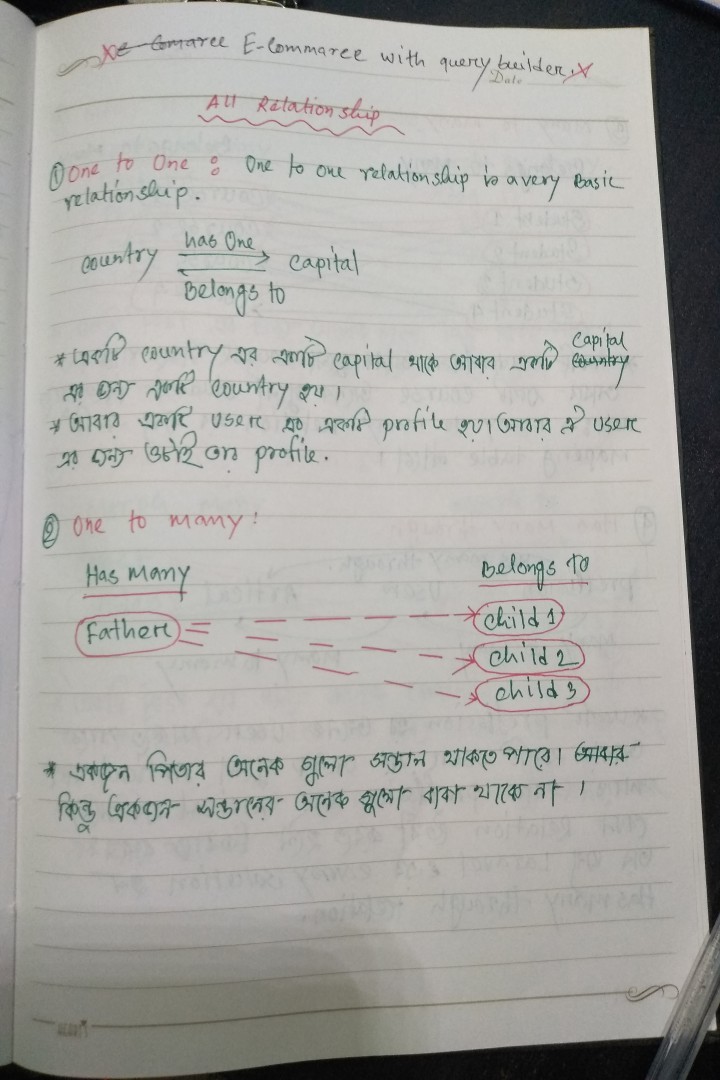 E-Commarce E-Commarce with query builder.
Date
All Relationship
① One to One : One to one relationship is a very Basic
relationship.
country has One capital
Belongs to
capital
* একটি country এর একটি capital থাকে আবার একটি country
এর জন্য একটি country হয়।
* আবার একটি user এর একটি profile হয়। আবার ঐ user
এর জন্য ওটাই তার profile.
② One to many!
Has many Belongs to
Father child 1
child 2
child 3
* একজন পিতার অনেক গুলো সন্তান থাকতে পারে। আবার
কিন্তু একজন সন্তানের অনেক গুলো বাবা থাকে না।